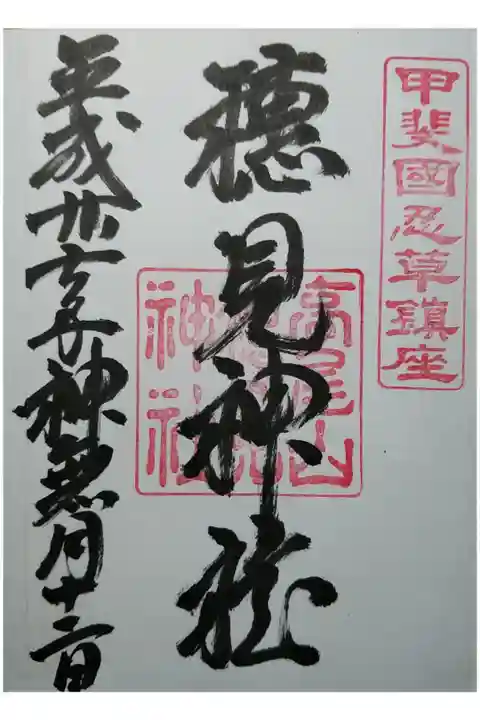 甲斐國忍草鎮座
穂見神社
高尾山
神社
平成廿七年神無月十二日